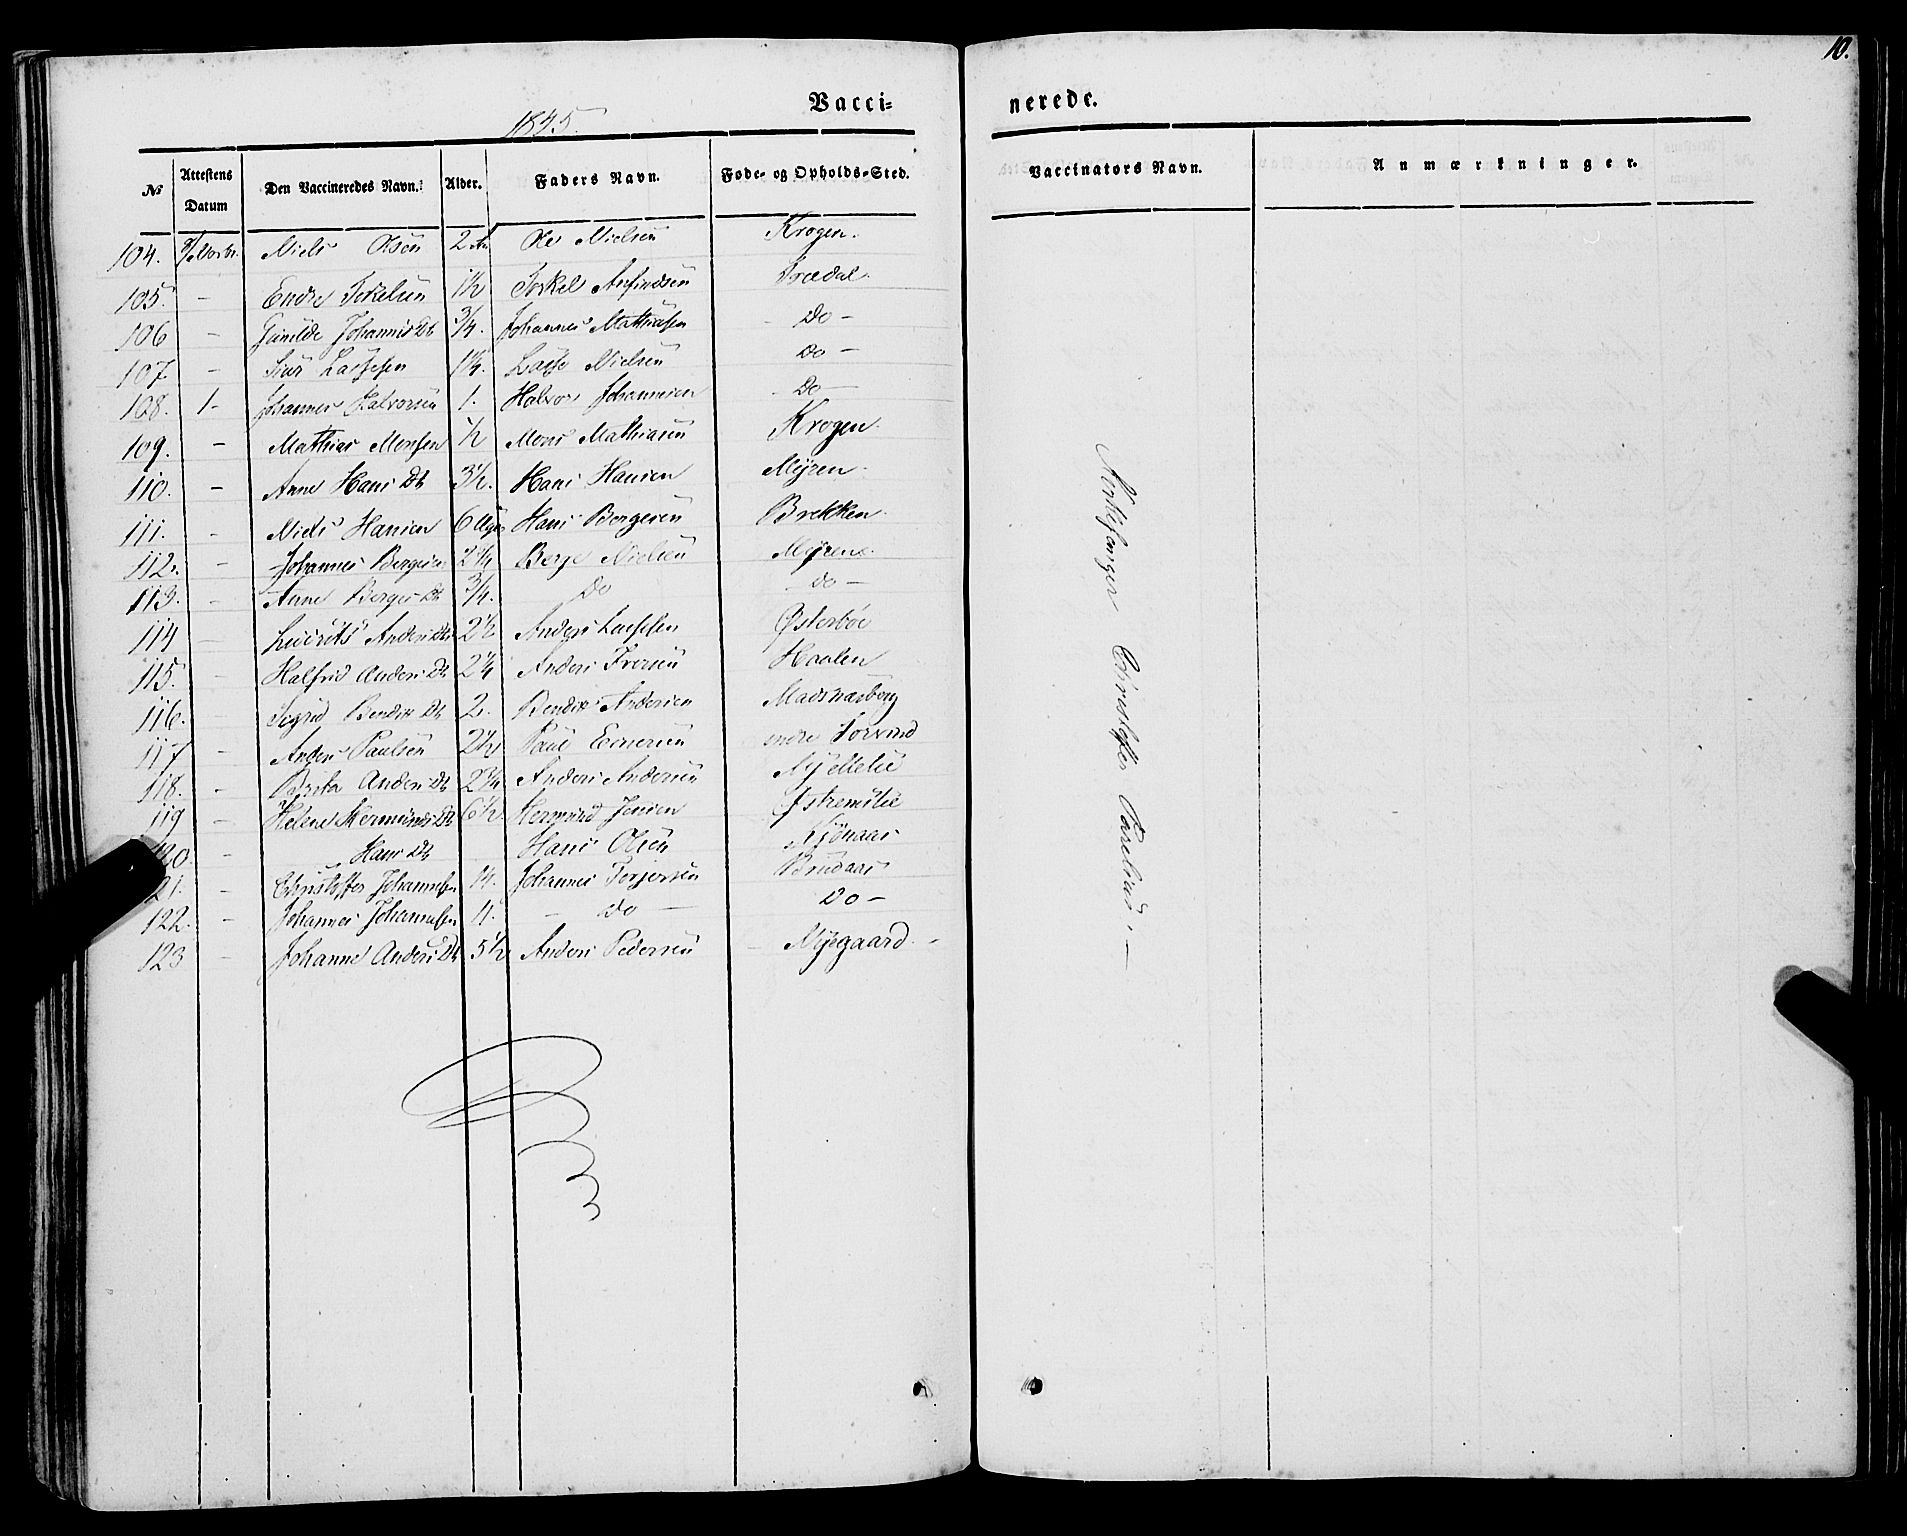 10.
Vacci= nerede.
1845.
№ Attestens Datum Den Vaccineredes Navn. Alder. Faders Navn. Føde- og Opholds-Sted. Vaccinators Navn. Anmærkninger.
104. Niels Olsen 2 Ole Nielsen Krogen.
105. - Endre Torkelsen 1½ Torkel Anfindsen Trædal.
106 - Gunilde Johannis Dt ¾. Johannes Mathiasen - Do -
107 - Siur Lassesen Lasse Nielsen Do -
108. 1- Johannes Halvorsen 1. Halvor Johannesen - Do -
109. - Mathias Monsen ½ Mons Mathiasen Krogen.
110. - Anne Hans Dt 3½. Hans Hansen Myren.
111. - Niels Hansen 6 Uger Hans Bergesen Brekken.
112. - Johannes Bergesen 2¾ Berge Nielsen Myrene.
113. - Anne Berges Dt ¾. Do - Do -
114 - Anders Dtr 2½ Anders Lassesen Østerbøe
115. - Halfrid Anders Dt 2¼ Anders Iversen Haalen
116. - Sigrid Bendix Dt 2. Bendix Andersen
117 - Anders Paulsen 2½ Paul indre
118. - Brita Anders Dt 2¾ Anders Andersen
119 - Helene Hermunds Dt 6½. Hermund Jensen
120 - Hans Dt Hans Olsen
121. - Christoffer Johannesen 14. Johannes Torjersen
122. - Johannes Johannesen 11. - Do - Do -
123 - Johanne Anders Dt 5½ Anders Pedersen - Nyegaard. -
Christoffer -